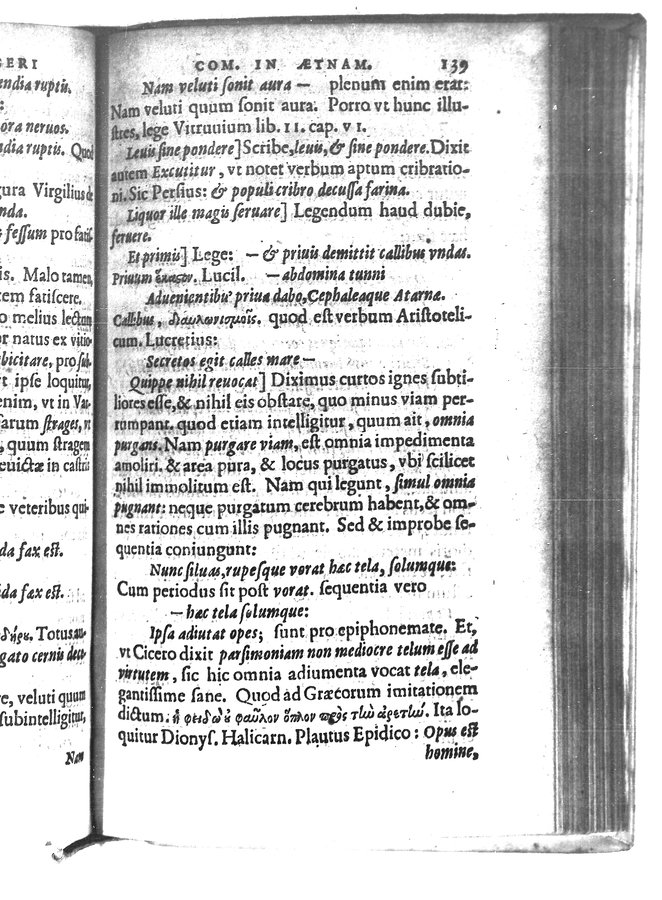 GERI
endia ruptis.
ora neruos.
ndia ruptis. Quod
gura Virgilius de
nda.
s fessum pro fatis.
is. Malo tamen,
tem fatiscere.
o melius lectum
or natus ex vitio-
bicitare, pro sub-
t ipse loquitur,
enim, vt in Var-
farum strages, vt
, quum stragem
euictæ in castris
e veteribus qui-
da fax est.
ida fax est.
Totus au-
gato cernis dect-
re, veluti quum
subintelligitur,
Nam
COM. IN ÆTNAM. 139
Nam veluti sonit aura — plenum enim erat:
Nam veluti quum sonit aura. Porro vt hunc illu-
stres, lege Vitruuium lib. 11. cap. VI.
Leuis sine pondere] Scribe, leuis, & sine pondere. Dixit
autem Excutitur, vt notet verbum aptum cribratio-
ni. Sic Persius: & populi cribro decussa farina.
Liquor ille magis seruare] Legendum haud dubie,
feruere.
Et primis] Lege: — & priuis demittit callibus vndas.
Priuum ἕκαστον. Lucil. — abdomina tunni
Aduenientibu' priua dabo, Cephaleaque Atarnæ.
Callibus, διαυλωνισμοῖς. quod est verbum Aristoteli-
cum. Lucretius:
Secretos egit calles mare —
Quippe nihil reuocat] Diximus curtos ignes subti-
liores esse, & nihil eis obstare, quo minus viam per-
rumpant. quod etiam intelligitur, quum ait, omnia
purgans. Nam purgare viam, est omnia impedimenta
amoliri. & area pura, & locus purgatus, vbi scilicet
nihil immolitum est. Nam qui legunt, simul omnia
pugnant: neque purgatum cerebrum habent, & om-
nes rationes cum illis pugnant. Sed & improbe se-
quentia coniungunt:
Nunc siluas, rupesque vorat hæc tela, solumque:
Cum periodus sit post vorat. sequentia vero
— hæc tela solumque:
Ipsa adiutat opes; sunt pro epiphonemate. Et,
vt Cicero dixit parsimoniam non mediocre telum esse ad
virtutem, sic hic omnia adiumenta vocat tela, ele-
gantissime sane. Quod ad Græcorum imitationem
dictum. ἡ φειδὼ οὐ φαῦλον ὅπλον πρὸς τὼ ἀρετὼ. Ita lo-
quitur Dionys. Halicarn. Plautus Epidico: Opus est
homine,